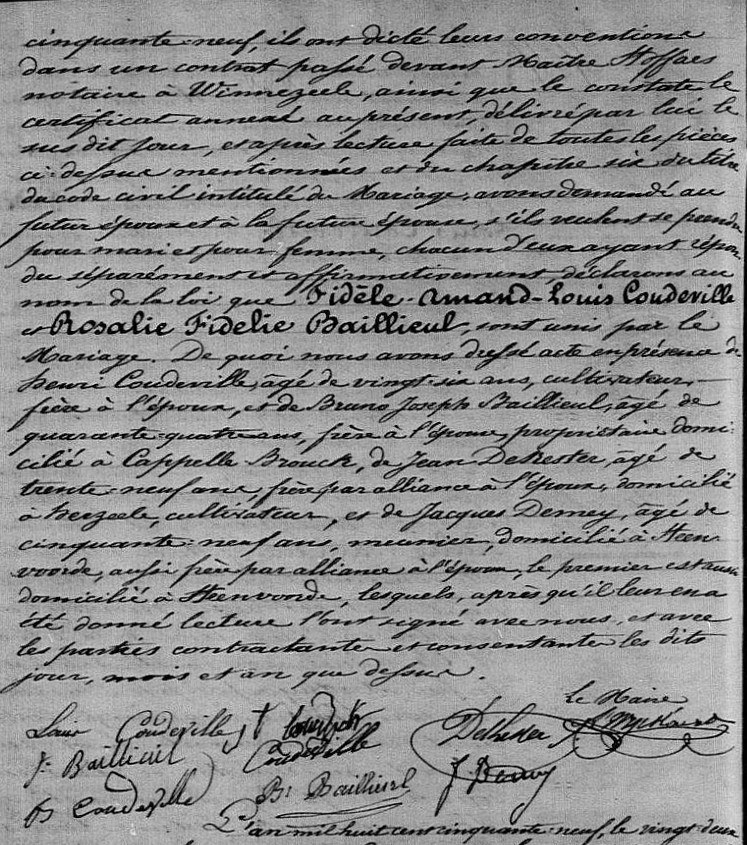 cinquante-neuf, ils ont dicté leurs conventions
dans un contrat passé devant Maître Stoffaes
notaire à Winnezeele, ainsi que le constate le
certificat annexé au présent, délivré par lui le
susdit jour, et après lecture faite de toutes les pièces
ci-dessus mentionnées et du chapitre six du titre
du code civil intitulé du Mariage, avons demandé au
futur époux et à la future épouse, s'ils veulent se prendre
pour mari et pour femme, chacun d'eux ayant répon-
du séparément et affirmativement déclarons au
nom de la loi que Fidèle-Amand-Louis Coudeville
et Rosalie Fidelie Baillieul, sont unis par le
Mariage. De quoi nous avons dressé acte en présence de
henri Coudeville, âgé de vingt-six ans, cultivateur,
frère à l'époux, et de Bruno Joseph Baillieul, âgé de
quarante-quatre ans, frère à l'épouse, propriétaire domi-
cilié à Cappelle Brouck, de Jean Dehester, âgé de
trente-neuf ans, frère par alliance à l'époux, domicilié
à herzeele, cultivateur, et de Jacques Demey, âgé de
cinquante-neuf ans, meunier, domicilié à Steen-
voorde, aussi frère par alliance à l'époux, le premier est aussi
domicilié à Steenvoorde, lesquels, après qu'il leur en a
été donné lecture l'ont signé avec nous, et avec
les parties contractantes et consentantes les dits
jour, mois et an que dessus.
le Maire
Louis Coudeville Dehester
Baillieul Coudeville
Coudeville Bt Baillieul J Demey
L'an mil huit cent cinquante-neuf, le vingt-deux